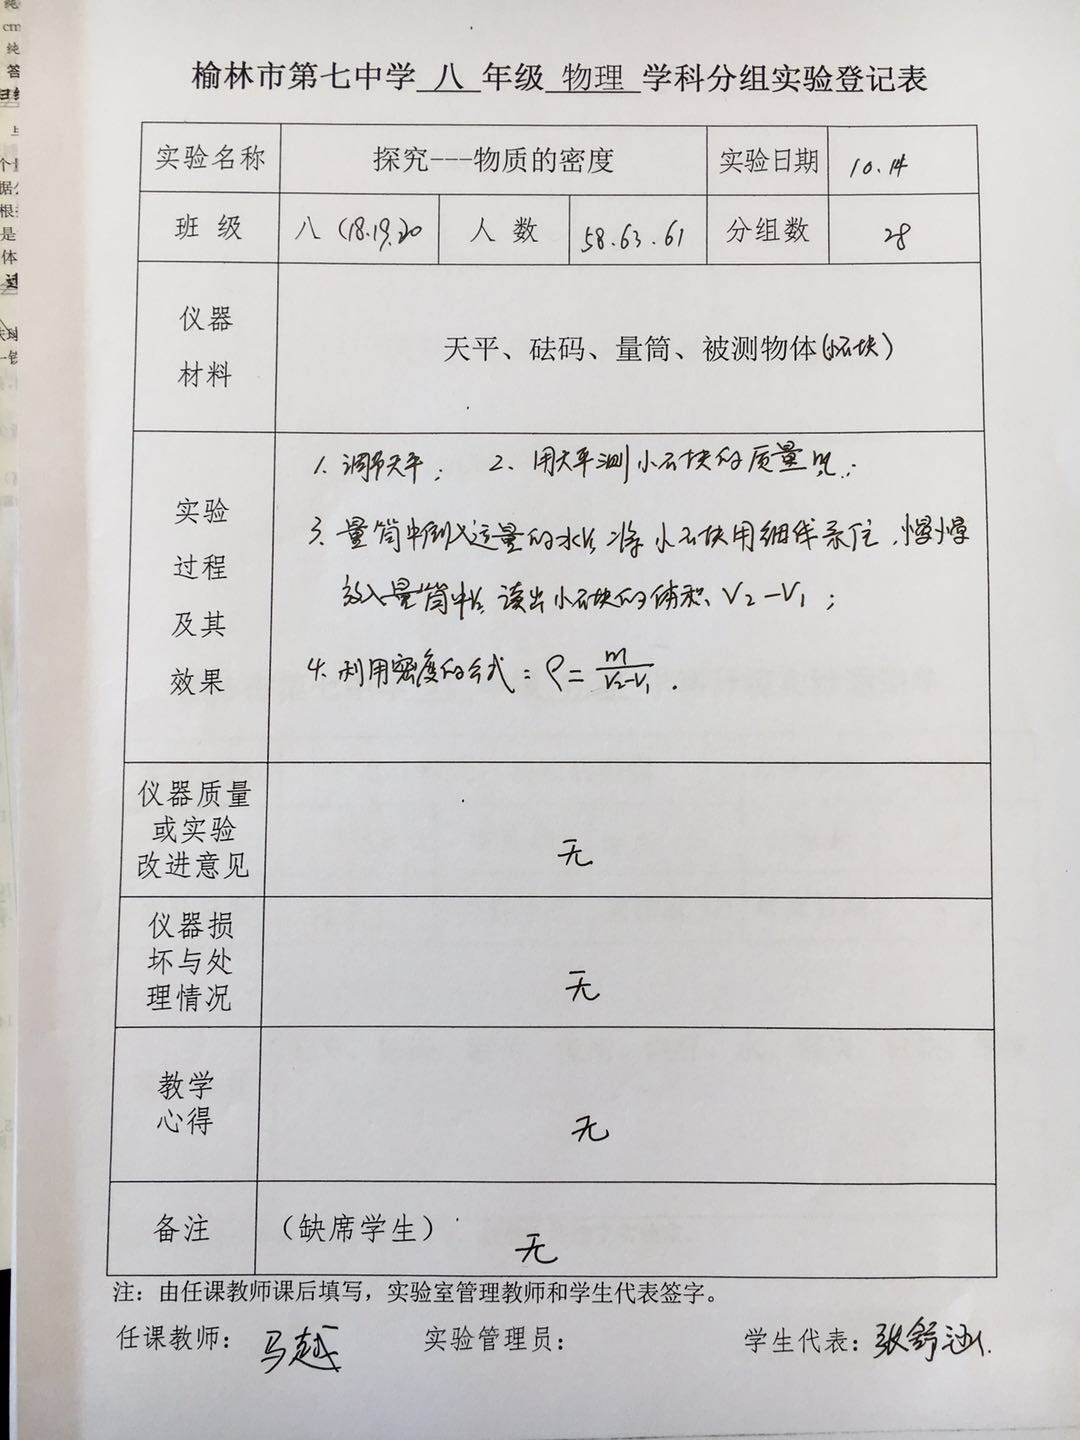 榆林市第七中学 八 年级 物理 学科分组实验登记表
实验名称 探究---物质的密度 实验日期 10.14
班 级 八(18.19.20 人 数 58.63.61 分组数 28
仪器
材料
天平、砝码、量筒、被测物体(小石块)
实验
过程
及其
效果
1. 调节天平; 2. 用天平测小石块的质量m;
3. 量筒中倒入适量的水V₁, 将小石块用细线系住,慢慢
放入量筒中, 读出小石块的体积V₂-V₁;
4. 利用密度的公式:ρ=m/(V₂-V₁).
仪器质量
或实验
改进意见
无
仪器损
坏与处
理情况
无
教学
心得
无
备注 (缺席学生) 无
注:由任课教师课后填写,实验室管理教师和学生代表签字。
任课教师: 马越 实验管理员: 学生代表: 张舒涵